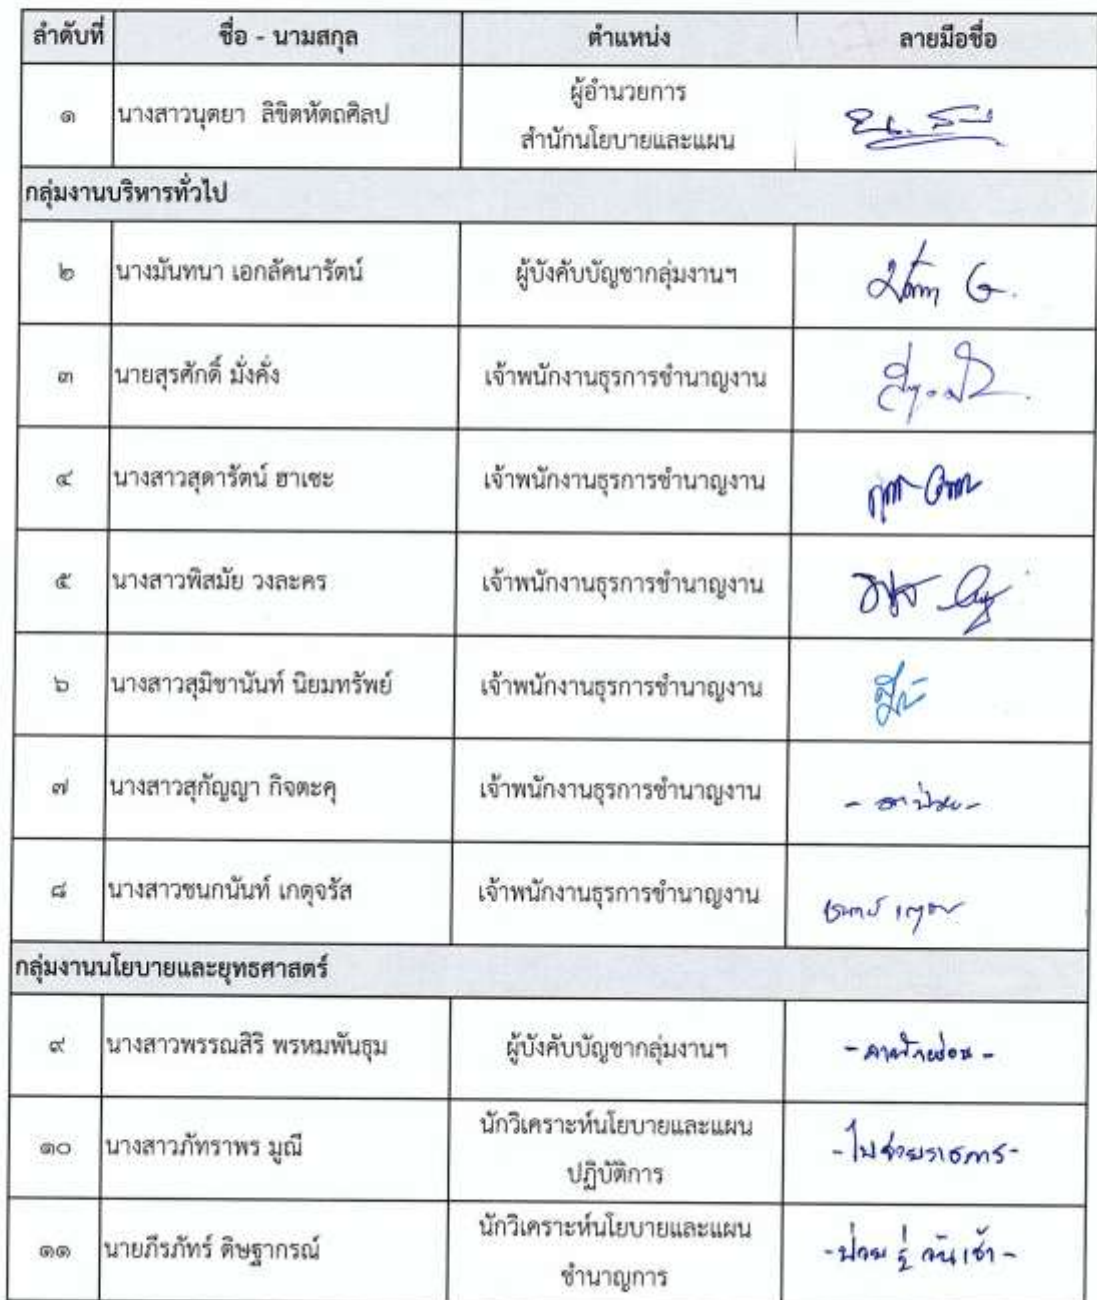 ลำดับที่ ชื่อ - นามสกุล ตำแหน่ง ลายมือชื่อ
๑ นางสาวนุตยา ลิขิตหัตถศิลป ผู้อำนวยการ
สำนักนโยบายและแผน
กลุ่มงานบริหารทั่วไป
๒ นางมันทนา เอกลัคนารัตน์ ผู้บังคับบัญชากลุ่มงานฯ
๓ นายสุรศักดิ์ มั่งคั่ง เจ้าพนักงานธุรการชำนาญงาน
๔ นางสาวสุดารัตน์ ฮาเซะ เจ้าพนักงานธุรการชำนาญงาน
๕ นางสาวพิสมัย วงละคร เจ้าพนักงานธุรการชำนาญงาน
๖ นางสาวสุมิชานันท์ นิยมทรัพย์ เจ้าพนักงานธุรการชำนาญงาน
๗ นางสาวสุกัญญา กิจตะคุ เจ้าพนักงานธุรการชำนาญงาน - ลาป่วย -
๘ นางสาวชนกนันท์ เกตุจรัส เจ้าพนักงานธุรการชำนาญงาน
กลุ่มงานนโยบายและยุทธศาสตร์
๙ นางสาวพรรณสิริ พรหมพันธุม ผู้บังคับบัญชากลุ่มงานฯ - ลาพักผ่อน -
๑๐ นางสาวภัทราพร มูณี นักวิเคราะห์นโยบายและแผน
ปฏิบัติการ - ไปช่วยราชการ -
๑๑ นายภีรภัทร์ ดิษฐากรณ์ นักวิเคราะห์นโยบายและแผน
ชำนาญการ